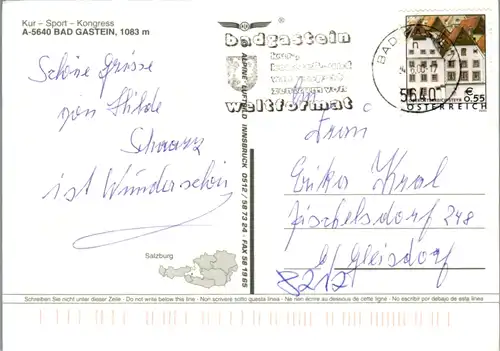 Kur – Sport – Kongress
A-5640 BAD GASTEIN, 1083 m
®
badgastein
kur-
zentrum von
weltformat
BAD
5640
€ 0.55
ÖSTERREICH
Schöne Grüsse
von Hilde
Schwarz
ist Wunderschön
ALPINE LUFTBILD INNSBRUCK 0512 / 58 73 24 · FAX 58 19 65
Frau
Erika Kral
Fischelsdorf 248
b/Gleisdorf
8212
Salzburg
Schreiben Sie nicht unter dieser Zeile - Do not write below this line - Non scrivere sotto questa linea - Ne rien écrire au dessous de cette ligne - No escribir por debajo de esta línea